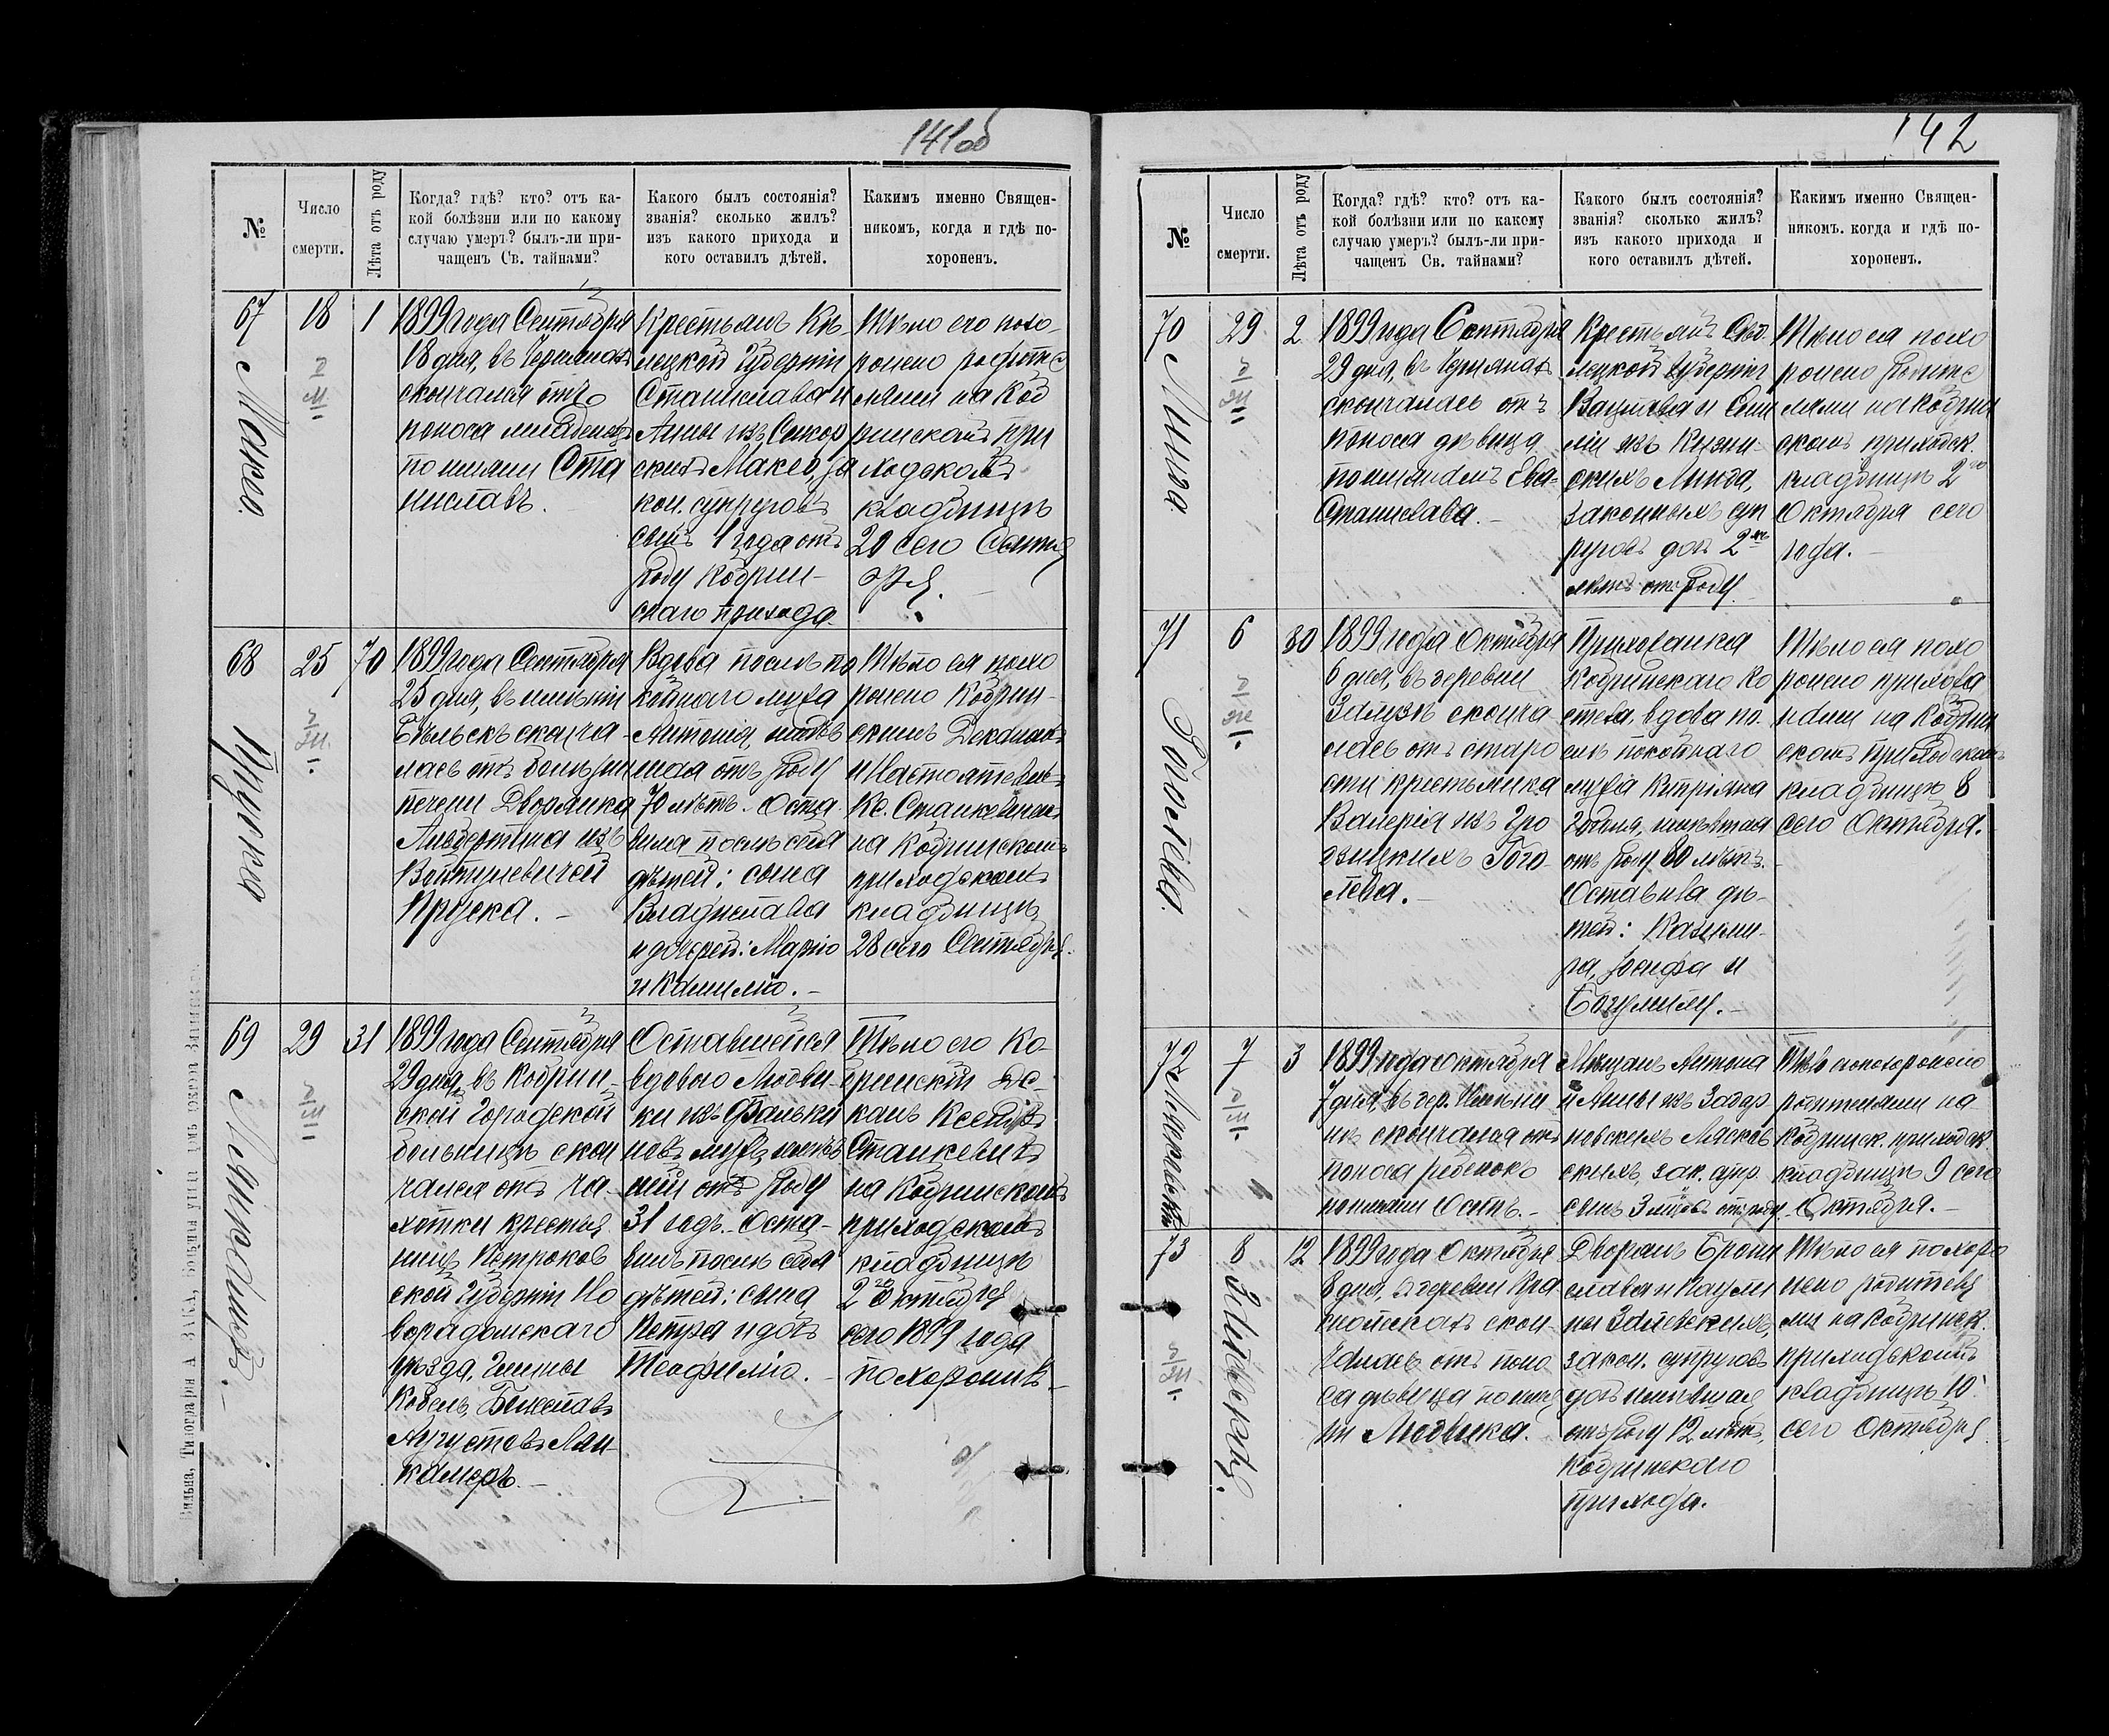 141об
№
Число
смерти.
Лѣта отъ роду
Когда? гдѣ? кто? отъ ка-
кой болѣзни или по какому
случаю умеръ? былъ-ли при-
чащенъ Св. тайнами?
Какого былъ состоянія?
званія? сколько жилъ?
изъ какого прихода и
кого оставилъ дѣтей.
Какимъ именно Священ-
никомъ, когда и гдѣ по-
хороненъ.
67
18
1
1899 года Сентября
18 дня, въ
скончался отъ
поноса младенецъ
по имени Ста
ниславъ.
Крестьянъ Кѣ-
лецкой Губерніи
Станислава и
Анны изъ Сикор
скихъ Макso, за
кон. супруговъ
сынъ 1 года отъ
роду Кобрин-
скаго прихода
Тѣло его похо-
ронено родите
лями на Коб
ринскомъ при
ходскомъ
кладбищѣ
20 сего Сентя
бря.
68
25
70
Пруска
1899 года Сентября
25 дня, въ имѣніи
Бѣльскъ сконча-
лась отъ болѣзни
печени Дворянка
Альбертина изъ
Войтулевичей
Пруска. -
Вдова послѣ по
койнаго мужа
Антонія, имѣв
шая отъ роду
70 лѣтъ. Оста
вила послѣ себя
дѣтей: сына
Владислава
и дочерей: Марію
и Камилю. -
Тѣло ея похо
ронено Кобрин-
скимъ Деканомъ
и Настоятелемъ
Кс. Станкевичемъ
на Кобринскомъ
приходскомъ
кладбищѣ
28 сего Сентября.
69
29
31
1899 года Сентября
29 дня, въ Кобрин-
ской Городской
больницѣ скон
чался отъ ча-
хотки крестья
нинъ Петроков
ской Губерніи Но
ворадомскаго
уѣзда, Гмины
Кобель, Болеславъ
Августовъ Лян
камеръ. -
Оставшейся
вдовою Людви-
ки изъ
новъ мужъ, имѣв
шій отъ роду
31 годъ. Оста-
вилъ послѣ себя
дѣтей: сына
Петра и дочь
Теофилю. -
Тѣло его Ко-
бринскій Де-
канъ Ксендзъ
Станкевичъ
на Кобринскомъ
приходскомъ
кладбищѣ
2го Октября
сего 1899 года
похоронилъ -
Вильна, Типографія А.
142
№
Число
смерти.
Лѣта отъ роду
Когда? гдѣ? кто? отъ ка-
кой болѣзни или по какому
случаю умеръ? былъ-ли при-
чащенъ Св. тайнами?
Какого былъ состоянія?
званія? сколько жилъ?
изъ какого прихода и
кого оставилъ дѣтей.
Какимъ именно Священ-
никомъ. когда и гдѣ по-
хороненъ.
70
29
2
1899 года Сентября
29 дня, въ
скончалась отъ
поноса дѣвица
по именамъ Ева-
Станислава. -
Крестьянъ Сѣд-
лецкой Губерніи
Вацлава и Еми
ліи изъ
скихъ Линда,
законныхъ суп
руговъ дочь 2хъ
лѣтъ отъ роду.
Тѣло ея похо
ронено родите
лями на Кобрин
скомъ приходск.
кладбищѣ 2го
Октября сего
года. -
71
6
80
1899 года Октября
6 дня, въ деревни
Залузѣ сконча
лась отъ старо
сти крестьянка
Валерія изъ Гро
дзицкихъ Гого-
лева. -
Прихожанка
Кобринскаго Ко
стела, вдова по-
слѣ покойнаго
мужа Кипріяна
Гоголя, имѣвшая
отъ роду 80 лѣтъ. -
Оставила дѣ-
тей: Казими-
ра, Іосифа и
Богумилу. -
Тѣло ея похо
ронено прихожа
нами на Кобрин
скомъ приходскомъ
кладбищѣ 8
сего Октября.
72
7
3
1899 года Октября
7 дня, въ дер.
скончался отъ
поноса ребенокъ
по имени Осипъ. -
Мѣщанъ Антона
и Анны изъ
Лясков
скихъ, зак. супр.
сынъ 3 лѣтъ отъ роду
Тѣло его похоронено
родителями на
Кобринск. приходск.
кладбищѣ 9 сего
Октября. -
73
8
12
1899 года Октября
8 дня, въ деревни
скон-
чалась отъ поно
са дѣвица по име
ни Людвика.
Дворянъ Брони
слава и Паули
ны Залевскихъ,
закон. супруговъ
дочь имѣвшая
отъ роду 12 лѣтъ,
Кобринскаго
прихода.
Тѣло ея похоро
нено родителя
ми на Кобринск.
приходскомъ
кладбищѣ 10
сего Октября